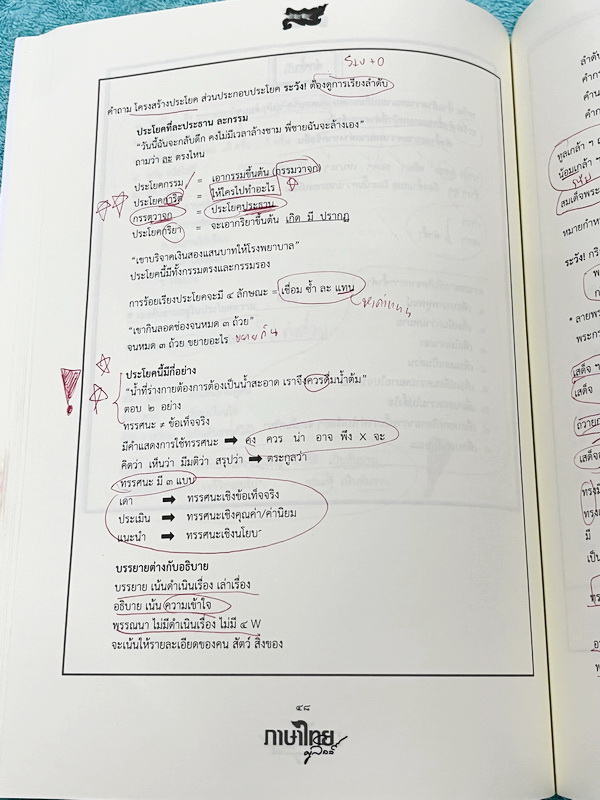 คำถาม โครงสร้างประโยค ส่วนประกอบประโยค ระวัง! ต้องดูการเรียงลำดับ
ประโยคที่ละประธาน ละกรรม
"วันนี้ฉันจะกลับดึก คงไม่มีเวลาล้างชาม พี่ชายฉันจะล้างเอง"
ถามว่า ละ ตรงไหน
ประโยคกรรม = เอากรรมขึ้นต้น (กรรมวาจก)
ประโยคการิต = ให้ใครไปทำอะไร
กรรตุวาจก = ประโยคประธาน
ประโยคกริยา = จะเอากริยาขึ้นต้น เกิด มี ปรากฏ
"เขาบริจาคเงินสองแสนบาทให้โรงพยาบาล"
ประโยคนี้มีทั้งกรรมตรงและกรรมรอง
การร้อยเรียงประโยคจะมี ๔ ลักษณะ = เชื่อม ซ้ำ ละ แทน
"เขากินลอดช่องจนหมด ๓ ถ้วย"
จนหมด ๓ ถ้วย ขยายอะไร ขยายกิน
ประโยคนี้มีกี่อย่าง
"น้ำที่ร่างกายต้องการต้องเป็นน้ำสะอาด เราจึงควรดื่มน้ำต้ม"
ตอบ ๒ อย่าง
ทรรศนะ ≠ ข้อเท็จจริง
มีคำแสดงการใช้ทรรศนะ ➡ คง ควร น่า อาจ พึง X จะ
คิดว่า เห็นว่า มีมติว่า สรุปว่า ➡ ตระกูลว่า
ทรรศนะ มี ๓ แบบ
เดา ➡ ทรรศนะเชิงข้อเท็จจริง
ประเมิน ➡ ทรรศนะเชิงคุณค่า/ค่านิยม
แนะนำ ➡ ทรรศนะเชิงนโยบาย
บรรยายต่างกับอธิบาย
บรรยาย เน้นดำเนินเรื่อง เล่าเรื่อง
อธิบาย เน้น ความเข้าใจ
พรรณนา ไม่มีดำเนินเรื่อง ไม่มี ๔ W
จะเน้นให้รายละเอียดของคน สัตว์ สิ่งของ
๔๘
ภาษาไทย